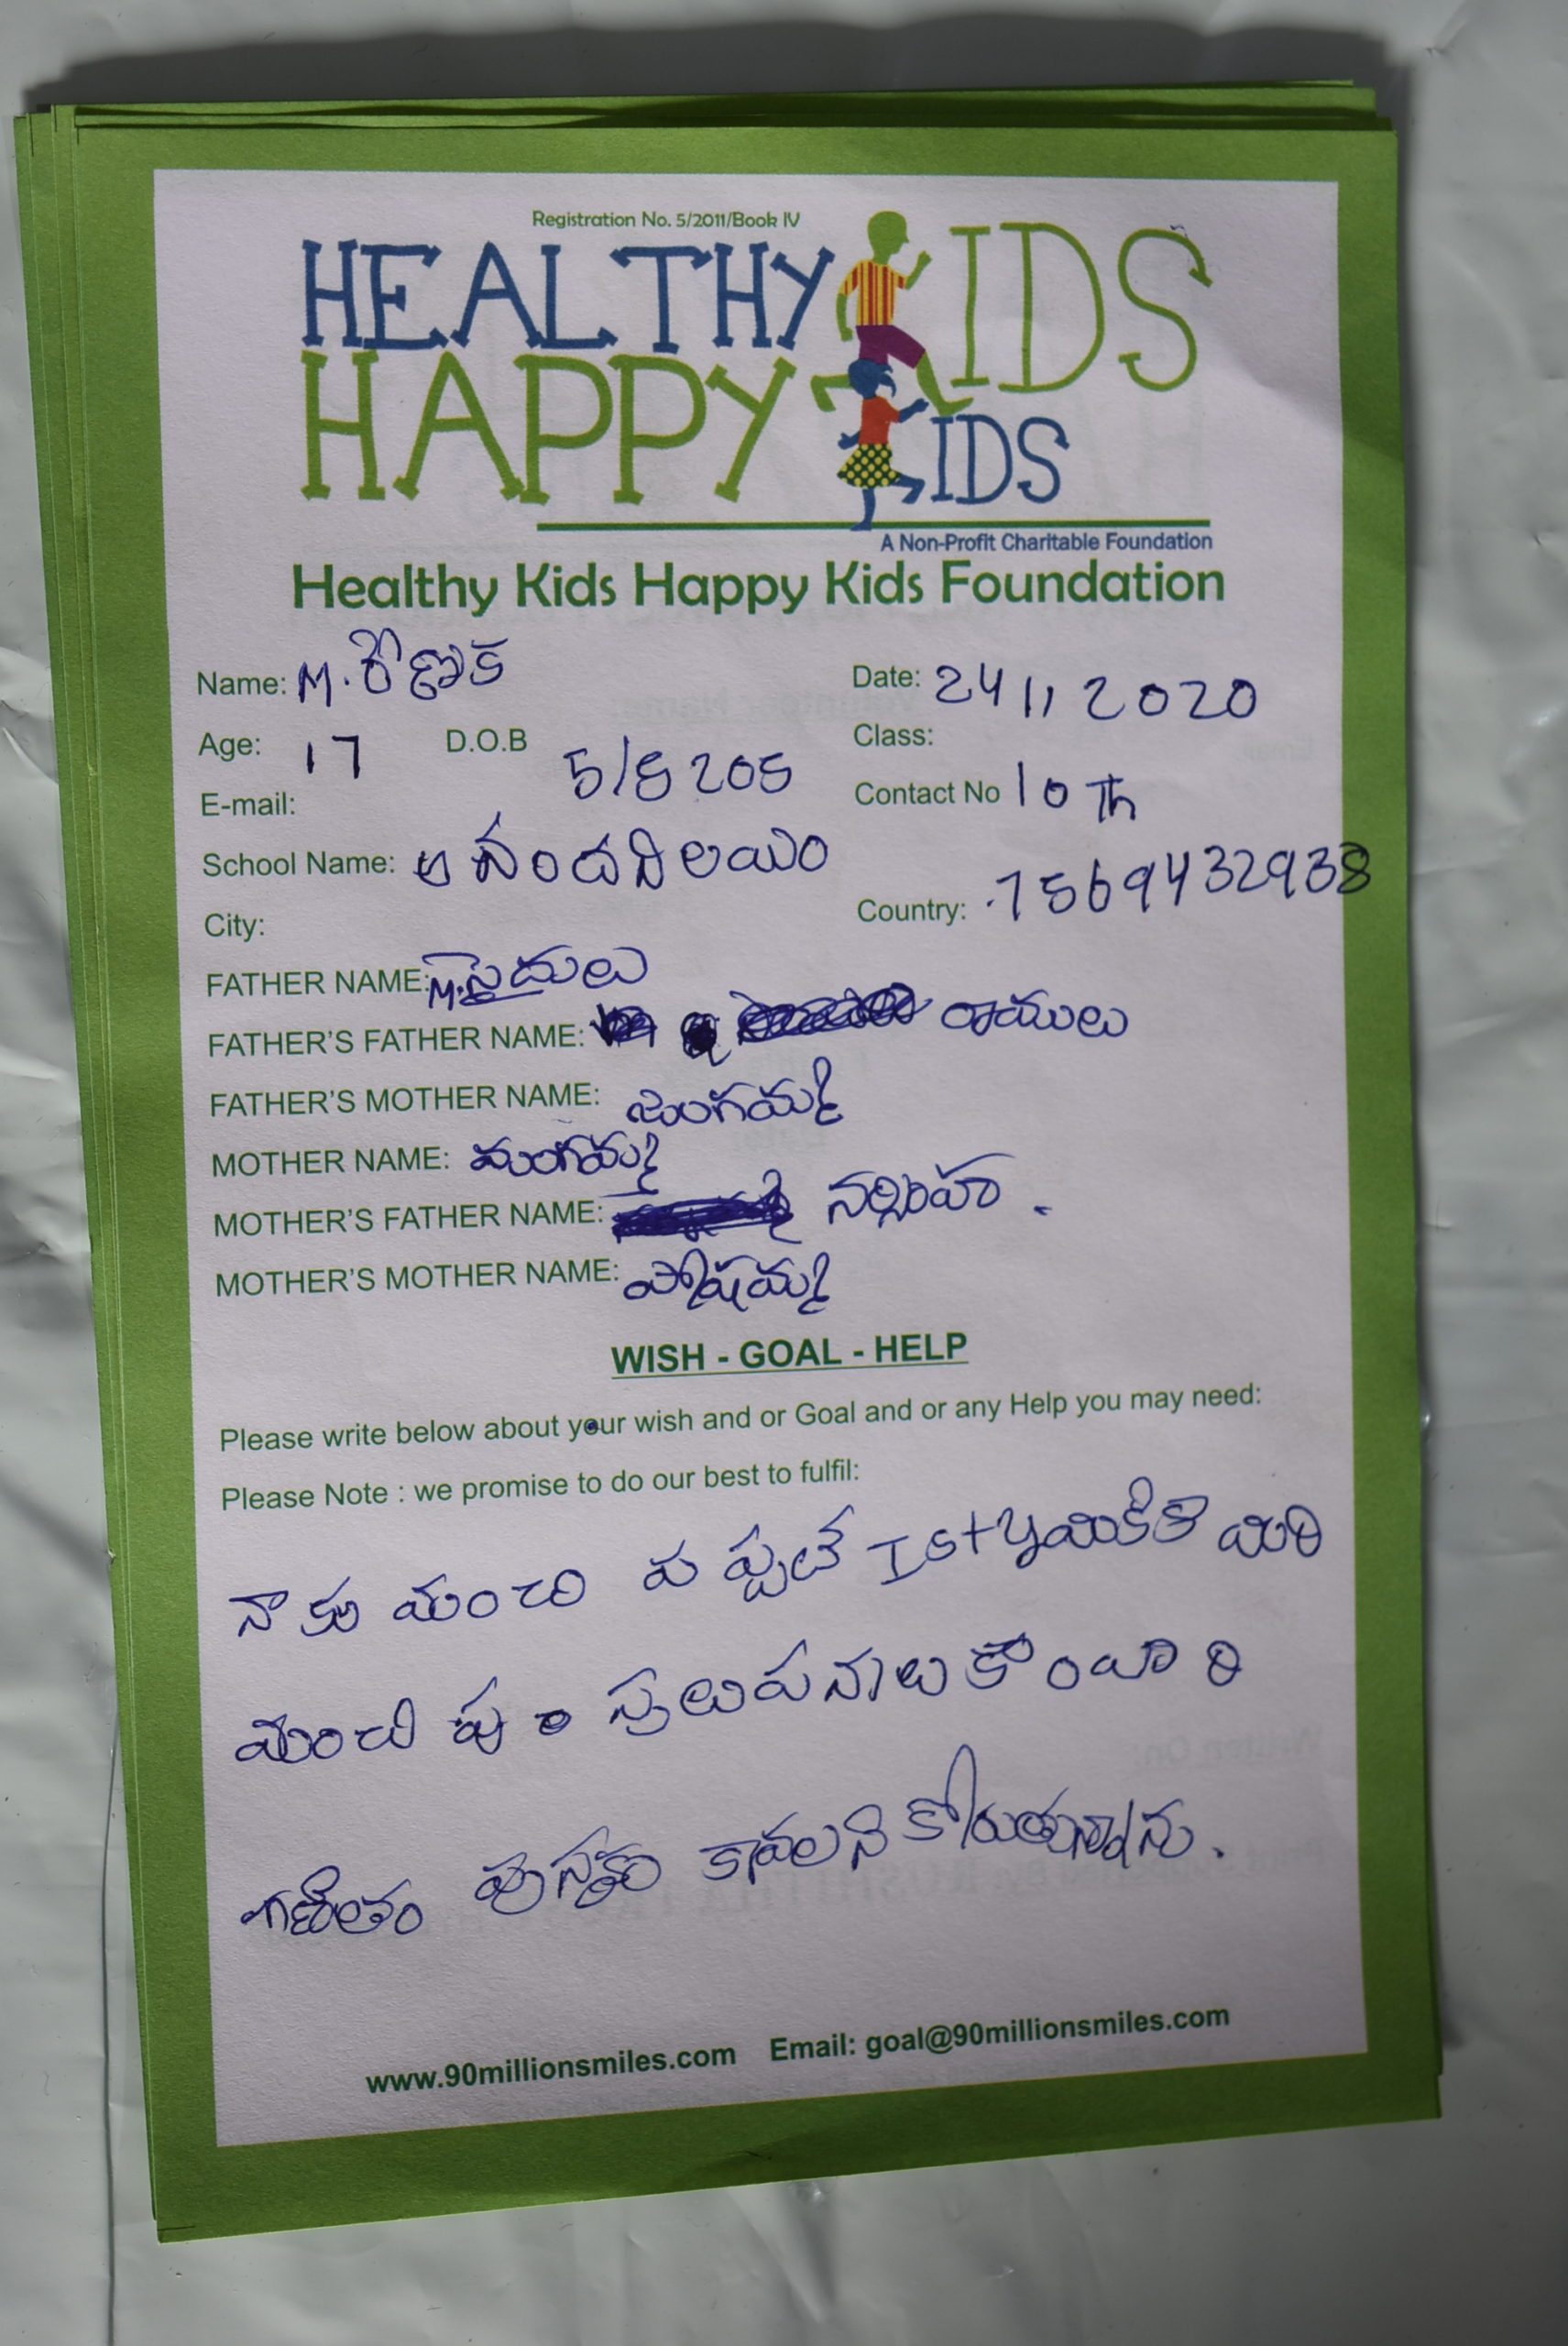 Registration No. 5/2011/Book IV
HEALTHY KIDS
HAPPY KIDS
A Non-Profit Charitable Foundation
Healthy Kids Happy Kids Foundation
Name: M. రేణుక Date: 24 11 2020
Age: 17 D.O.B 5/8 205 Class:
E-mail: Contact No 10 Th
School Name: ఆనందనిలయం
City: Country: 7569432938
FATHER NAME: M. సైదులు
FATHER'S FATHER NAME: రాములు
FATHER'S MOTHER NAME: జంగమ్మ
MOTHER NAME: మంగమ్మ
MOTHER'S FATHER NAME: నర్సింహ .
MOTHER'S MOTHER NAME: పోషమ్మ
WISH - GOAL - HELP
Please write below about your wish and or Goal and or any Help you may need:
Please Note : we promise to do our best to fulfil:
నాకు మంచి
మంచి
గణితం పుస్తకం కావలని కోరుతున్నాను.
www.90millionsmiles.com Email: goal@90millionsmiles.com